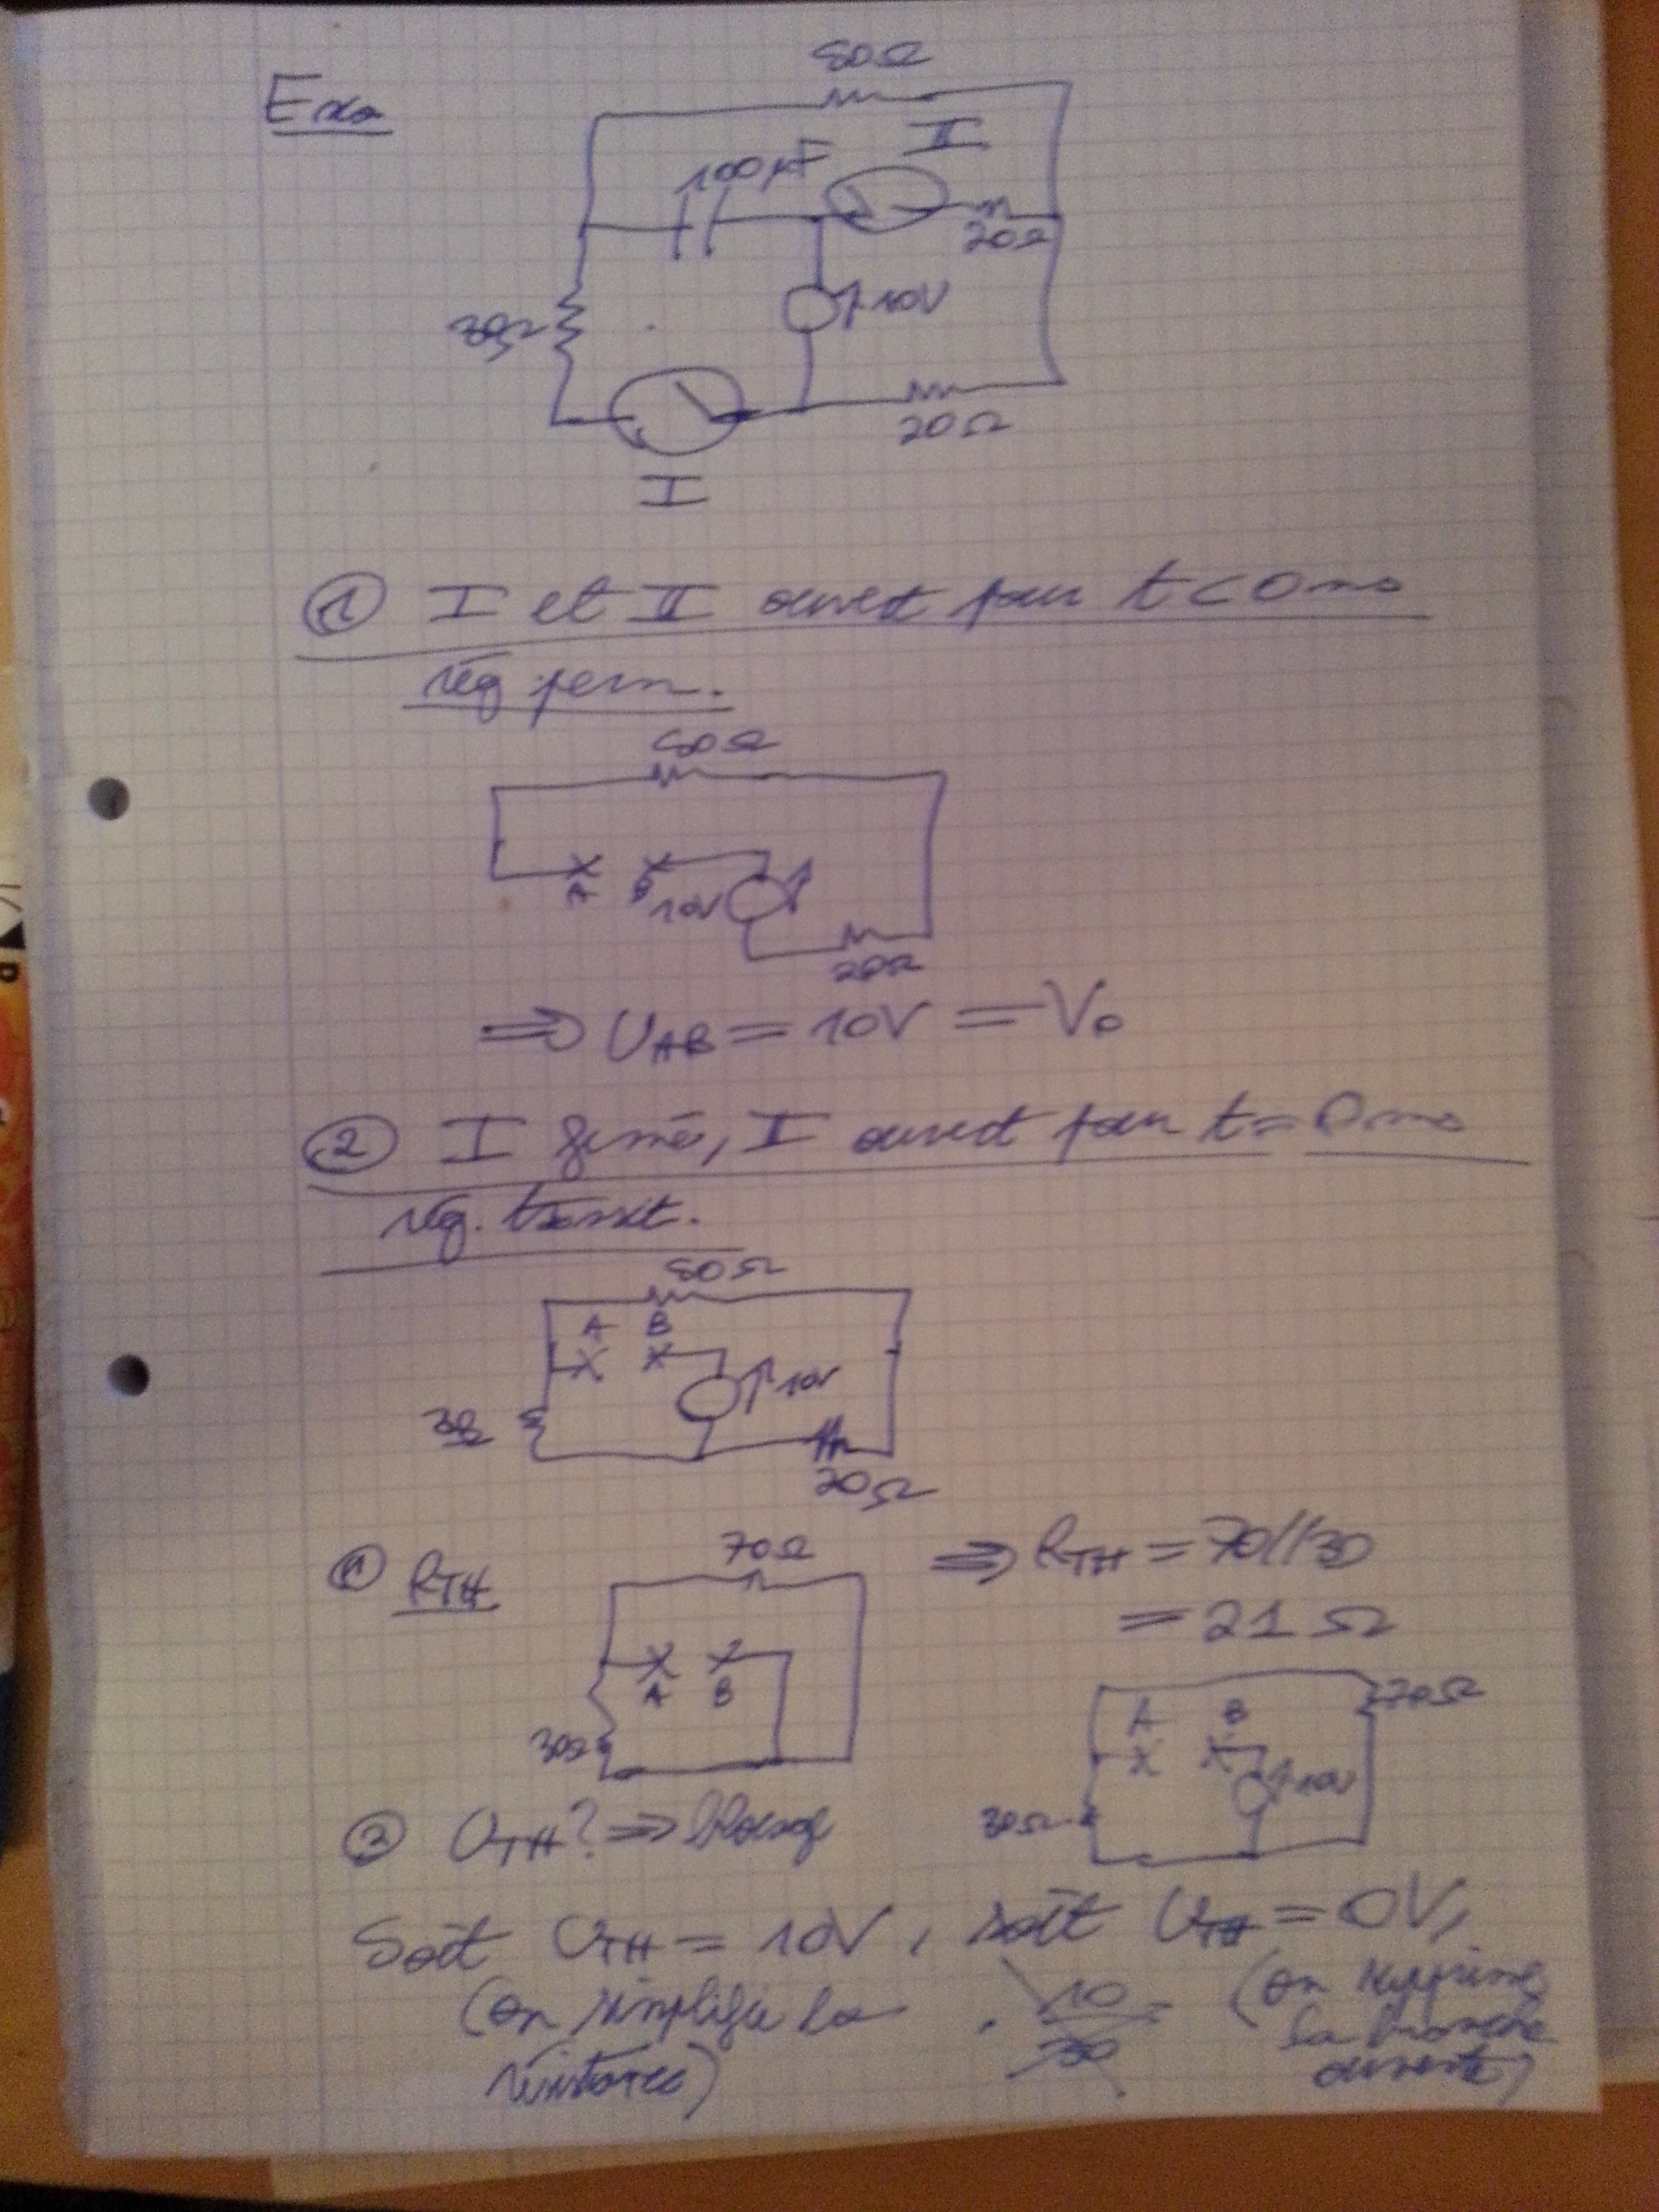 Exo
50Ω
II
100µF
20Ω
30Ω
10V
20Ω
I
① I et II ouvert pour t<0ms
rég perm.
50Ω
A B
10V
20Ω
⇒ U_AB = 10V = V₀
② I fermé, II ouvert pour t=0ms
rég. transit.
50Ω
A B
10V
30
20Ω
① R_TH
70Ω
⇒ R_TH = 70//30
= 21Ω
A B
30Ω
70Ω
A B
10V
30Ω
② U_TH? ⇒ blocage
Soit U_TH = 10V, soit U_TH = 0V,
(on simplifie la résistance)
10
30
(on supprime
la branche
ouverte)